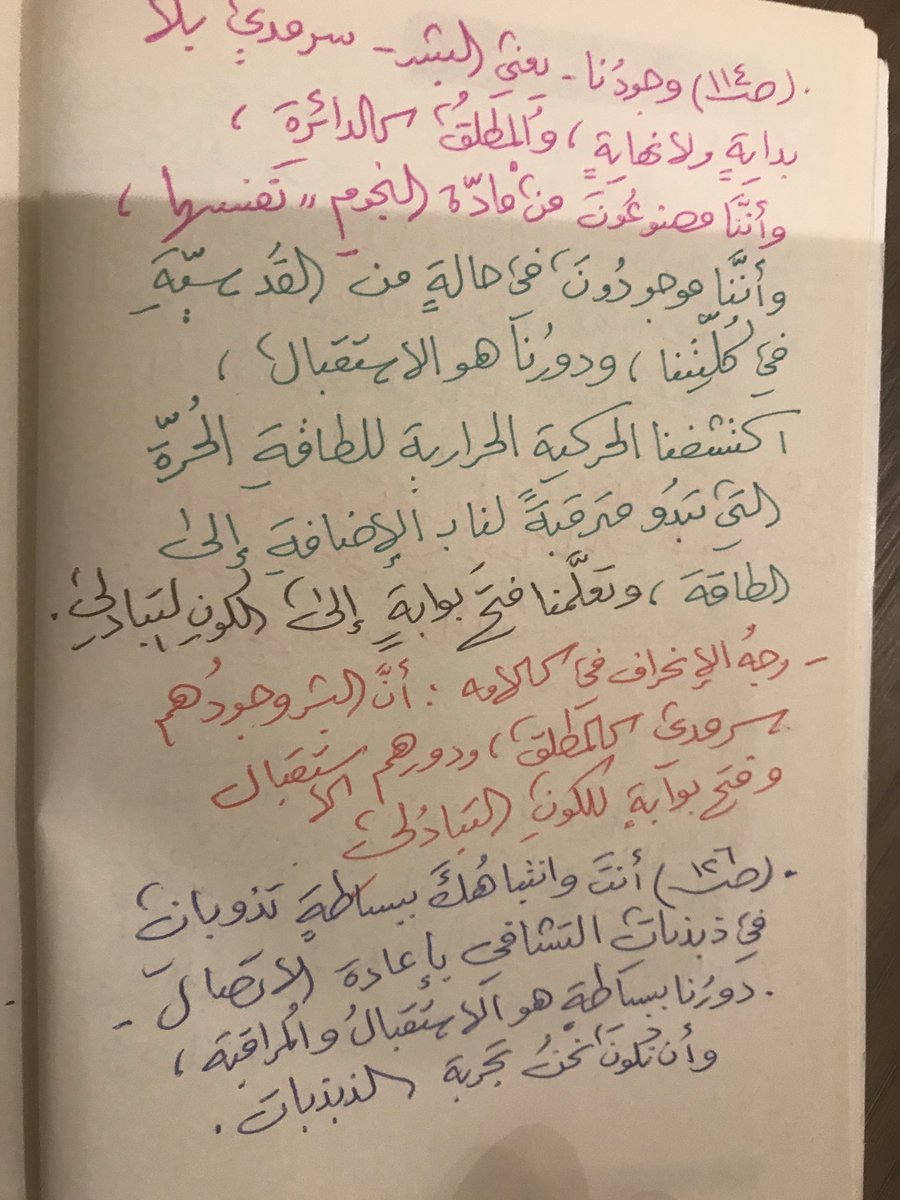 . (صـ١١٤) وجودُنا - يعني البشر - سرمديٌ بلا
بدايةٍ ولا نهايةٍ ، والمطلقُ كالدائرة ،
وأننَّا مصنوعُونَ من مادّة النجوم " نفسها ،
وأننَّا موجودُونَ في حالةٍ من القدسيّةِ
في كُلِّيتنا ، ودورُنا هو الاستقبال ،
اكتشفنا الحركية الحرارية للطاقةِ الحُرّة
التي تبدُو مترقبةً لنا بالإضافةِ إلى
الطاقة ، وتعلَّمنا فتحَ بوابةٍ إلى الكونِ التبادلي .
- وجهُ الإنحراف في كلامه : أنَّ البشر وجودُهم
سرمدي كالمطلق ، ودورهم الاستقبال
وفتح بوابةٍ للكونِ التبادُلي
. (صـ١٢٦) أنتَ وانتباهُكَ ببساطةٍ تذوبانِ
في ذبذباتِ التشافي بإعادة الاتصال -
. دورُنا ببساطةٍ هو الاستقبالُ والمُراقبة ،
وأن نكونَ نحنُ تجربة الذبذبات .